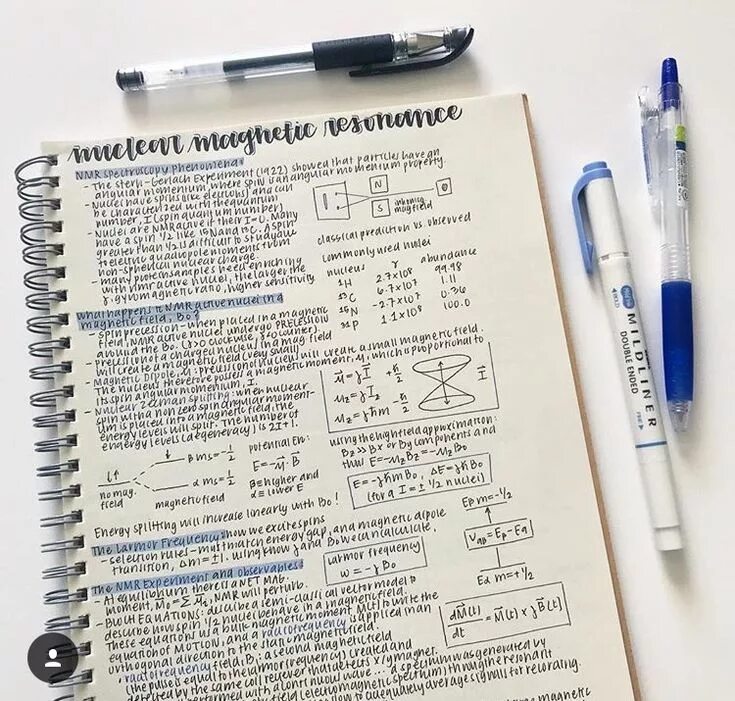 nuclear magnetic resonance
NMR spectroscopy phenomena:
- The Stern-Gerlach Experiment (1922) showed that particles have an
angular momentum, where spin is an angular momentum property.
- Nuclei have spins (like electrons) and can
be characterized with the quantum
number, I (spin quantum number)
- Nuclei are NMR active if their I=0. Many
have a spin 1/2 like 15N and 13C. A spin
greater than 1/2 is difficult to study due
to electric quadrupole moments from
non-spherical nuclear charge.
- many protein samples need enriching
with nmr active nuclei, the larger the
γ, gyromagnetic ratio, higher sensitivity
N
S
inhomog
mag field
classical prediction vs observed
commonly used nuclei
nucleus γ abundance
1H 2.7x10⁸ 99.98
13C 6.7x10⁷ 1.11
15N -2.7x10⁷ 0.36
31P 1.1x10⁸ 100.0
What happens to NMR active nuclei in a
magnetic field, B₀?
- spin precession - when placed in a magnetic
field, NMR active nuclei undergo PRECESSION
around the B₀. (γ>0 clockwise, γ<0 counter).
- precession of a charged nucleus in a mag. field
will create a magnetic field (very small)
- Magnetic Dipole, μ: precession of nuclei will create a small magnetic field.
The nucleus therefore posses a magnetic moment, μ, which is proportional to
its spin angular momentum, I.
- Nuclear Zeeman Splitting: when nuclear
spin with a non zero spin angular moment-
um is placed into a magnetic field, the
energy levels will split. The number of
energy levels (degeneracy) is 2I+1.
μ⃗ = γI⃗ +ℏ/2
μz = γIz
μz = γℏm -ℏ/2
I⃗
using the high field approximation:
Bz >> Bx or By components and
thus E=-μzBz=-μzB₀
E=-γℏmB₀, ΔE=γℏB₀
(for a I=±1/2 nuclei)
β ms=-1/2
α ms=1/2
no mag.
field
magnetic field
potential En:
E=-μ⃗·B⃗
β≡ higher and
α≡ lower E
Energy splitting will increase linearly with B₀!
The Larmor Frequency: how we excite spins
- selection rules - must match energy gap, and magnetic dipole
transition, Δm=±1. using know γ and B₀ we can calculate.
larmor frequency
ω=-γB₀
Eβ m=-1/2
Vαβ=Eβ-Eα
Eα m=+1/2
The NMR Experiment and observables:
- At equilibrium there is a NET MAG.
moment, M₀=Σμz, NMR will perturb.
- BLOCH EQUATIONS: describe a semi-classical vector model to
describe how spin 1/2 nuclei behave in a magnetic field.
These equations use a bulk magnetic moment M(t) to write the
equation of MOTION, and a radiofrequency is applied in an
orthogonal direction to the static magnetic field.
- radiofrequency field, B₁: a second magnetic field
(the pulse is equal to the larmor frequency) created and
detected by the same coil
dM⃗(t)/dt = M⃗(t) x γB⃗(t)
MILDLINER
DOUBLE ENDED
BOLD